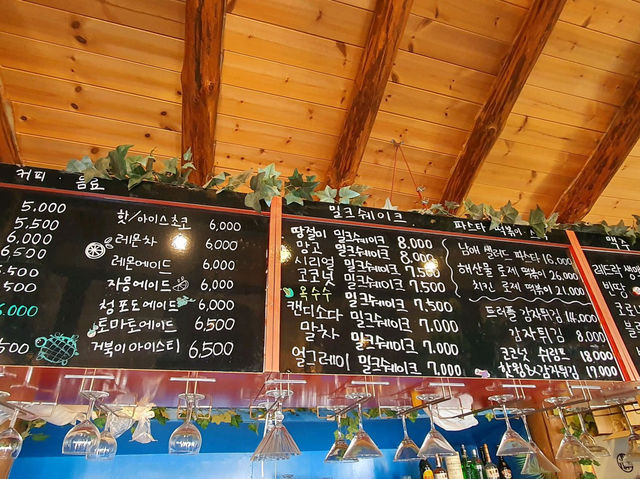 커피 음료
5.000
5,500
6.000
6,500
.500
.500
6.000
500
핫/아이스초코 6,000
레몬차 6,000
레몬에이드 6,000
자몽에이드 6,000
청포도에이드 6,000
토마토에이드 6,500
거북이아이스티 6,500
밀크쉐이크
땅컬이 밀크쉐이크 8.000
앙고 밀크쉐이크 8.000
시리얼 밀크쉐이크 7.500
코코넛 밀크쉐이크 7.500
옥수수 밀크쉐이크 7.500
캔디소다 밀크쉐이크 7.000
말차 밀크쉐이크 7.000
얼그레이 밀크쉐이크 7.000
파스타 떡볶이
남해 샐러드 파스타 18.000
해산물 로제 떡볶이 26,000
치킨 로제 떡볶이 21.000
트러플 감자튀김 14.000
감자튀김 8.000
코코넛 쉬림프 18.000
17.000
맥주
빈땅